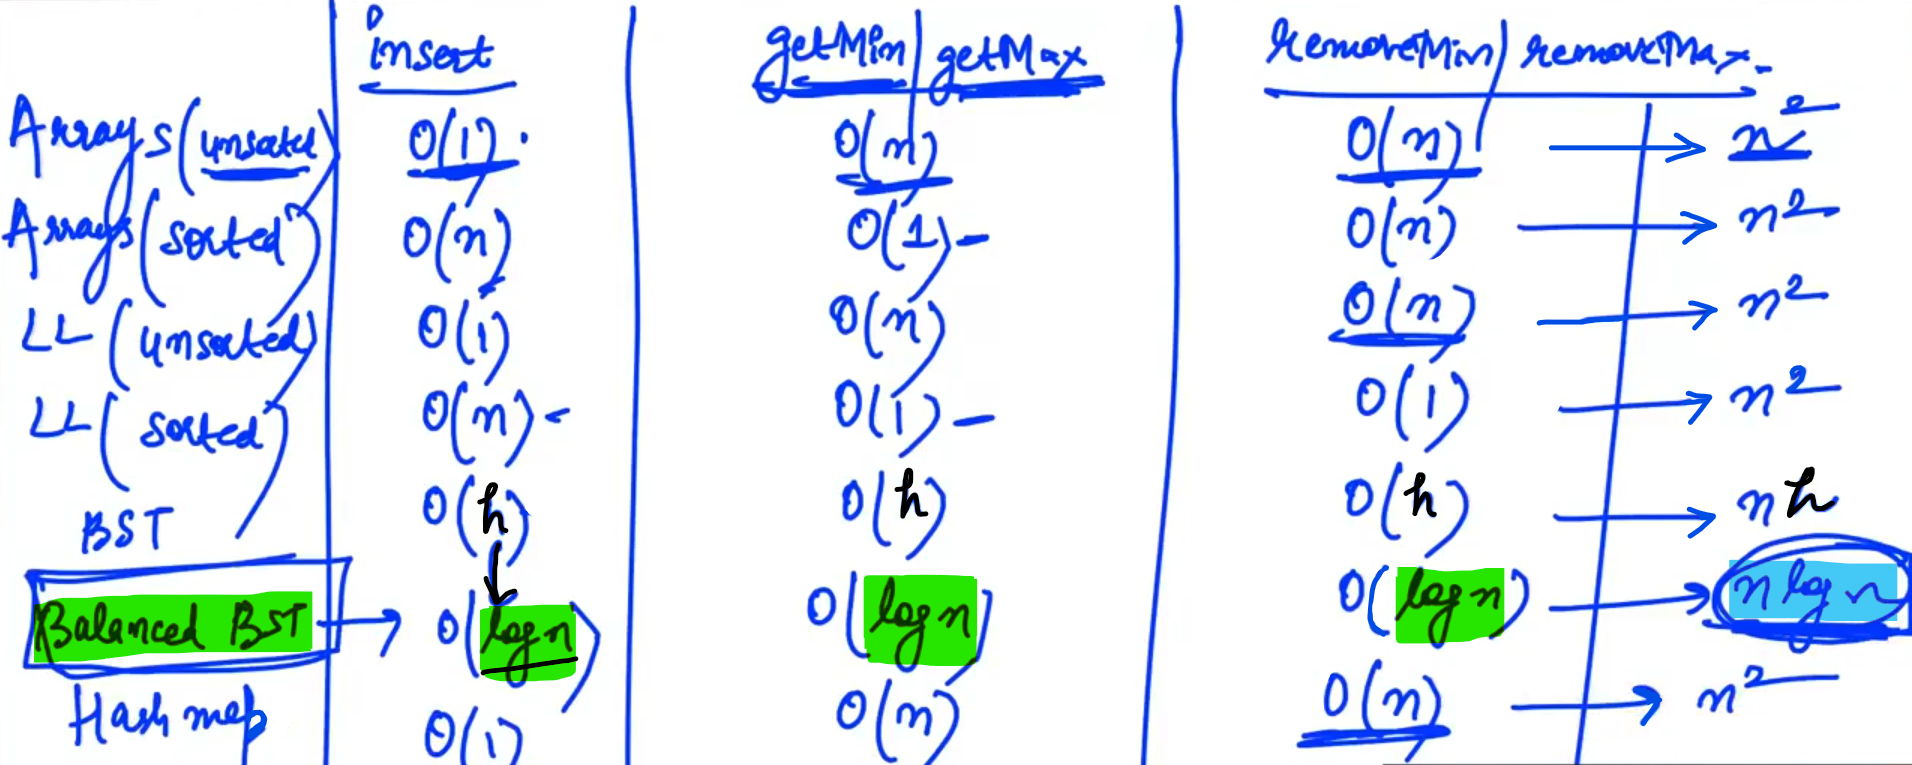 insert getMin getMax removeMin removeMax
Arrays (unsorted) O(1) O(n) O(n) → n²
Arrays (sorted) O(n) O(1) O(n) → n²
LL (unsorted) O(1) O(n) O(n) → n²
LL (sorted) O(n) O(1) O(1) → n²
BST O(h) O(h) O(h) → nh
Balanced BST → O(log n) O(log n) O(log n) → n log n
Hash map O(1) O(n) O(n) → n²